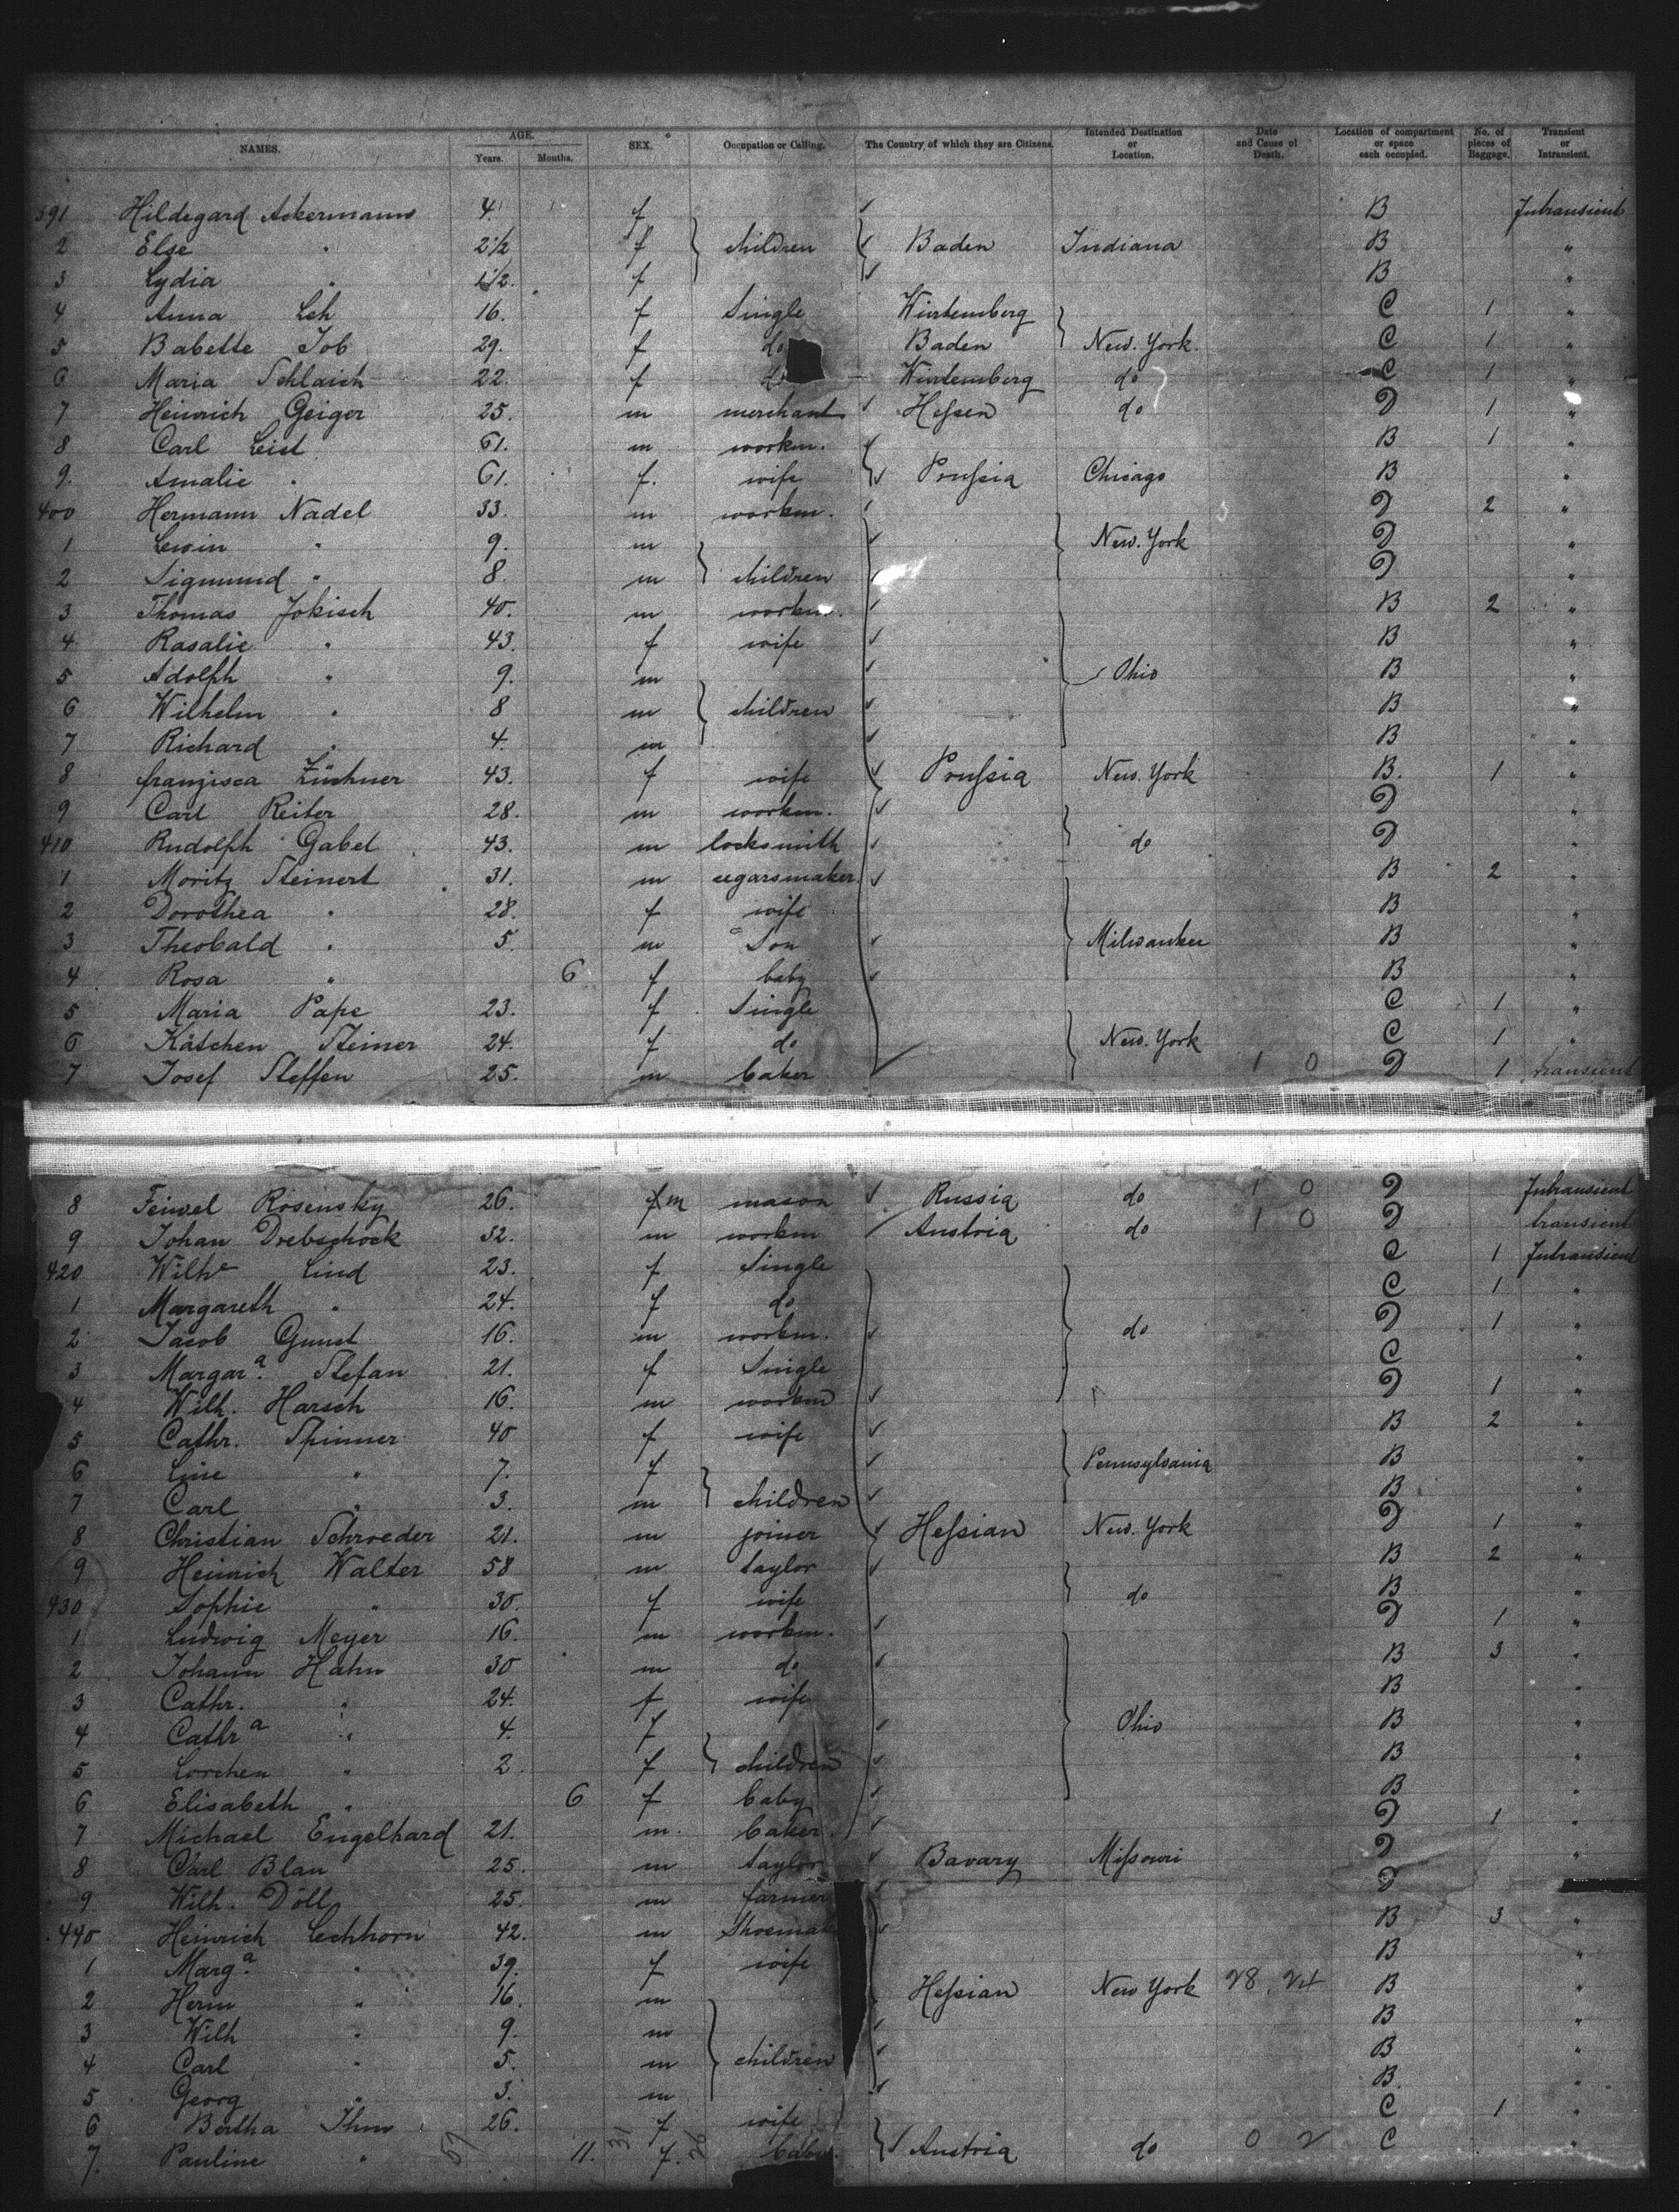 NAMES. AGE. Years. Months. SEX. Occupation or Calling. The Country of which they are Citizens. Intended Destination or Location. Date and Cause of Death. Location of compartment or space each occupied. No. of pieces of Baggage. Transient or Intransient.
391 Hildegard Ackermann 4. f B Intransient
2 Else " 2 1/2 f children Baden Indiana B "
3 Lydia " 1 1/2 f B "
4 Anna Leh 16. f Single Würtemberg C 1 "
5 Babette Job 29. f do Baden New-York. C 1 "
6 Maria Schlaich 22. f do Würtemberg do C 1 "
7 Heinrich Geiger 25. m merchant Hessen do D 1 "
8 Carl Leist 61. m workm. B 1 "
9. Amalie " 61. f. wife Prussia Chicago B "
400 Hermann Nadel 33. m workm. D 2 "
1 Lewin " 9. m New-York D "
2 Sigmund " 8. m children D "
3 Thomas Jokisch 40. m workm. B 2 "
4 Rasalie " 43. f wife B "
5 Adolph " 9. m Ohio B "
6 Wilhelm " 8 m children B "
7 Richard " 4. m B "
8 franzisca Züchner 43. f wife Prussia New-York B. 1 "
9 Carl Reiter 28. m workm. D "
410 Rudolph Gabel 43. m locksmith do D "
1 Moritz Steinert 31. m cegarsmaker. B 2 "
2 Dorothea " 28. f wife B "
3 Theobald " 5. m Son Milwaukee B "
4 Rosa " 6 f baby B "
5 Maria Pape 23. f Single C 1 "
6 Kätchen Steiner 24. f do New-York C 1 "
7 Josef Steffen 25. m baker 1 0 D 1 transient
8 Feiwel Rosensky 26. f m mason Russia do 1 0 D Intransient
9 Johan Drebschock 32. m workm Austria do 1 0 D transient
420 Wilhe Lind 23. f Single C 1 Intransient
1 Margareth " 24. f do C 1 "
2 Jacob Gunst 16. m workm. do D 1 "
3 Margara. Stefan 21. f Single C "
4 Wilh. Harsch 16. m workm D 1 "
5 Cathr. Spinner 40 f wife B 2 "
6 Line " 7. f Pennsylvania B "
7 Carl " 3. m children B "
8 Christian Schroeder 21. m joiner Hessian New-York D 1 "
9 Heinrich Walter 58 m taylor B 2 "
430 Sophie " 30. f wife do B "
1 Ludwig Meyer 16. m workm. D 1 "
2 Johann Hahn 30 m do B 3 "
3 Cathr. " 24. f wife B "
4 Cathra " 4. f Ohio B "
5 Lorchen " 2. f children B "
6 Elisabeth " 6 f baby B "
7 Michael Engelhard 21. m. baker. D 1 "
8 Carl Blau 25. m taylor Bavary Missouri D "
9 Wilh. Döll 25. m farmer D
440 Heinrich Lechhorn 42. m Shoemak B 3 "
1 Marga. " 39. f wife B "
2 Herm " 16. m Hessian New York 28 B "
3 Wilh " 9. m B "
4 Carl " 5. m children B "
5 Georg " 3. m B. "
6 Bertha Ihm 26. f wife C 1 "
7. Pauline " 11. f. baby. Austria do 0 2 C "
31 26